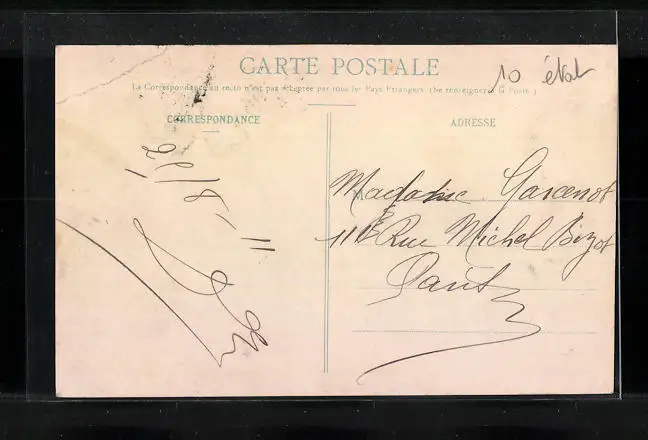 CARTE POSTALE
10 état
La Correspondance au recto n'est pas acceptée par tous les Pays Etrangers. (Se renseigner à la Poste.)
CORRESPONDANCE
ADRESSE
11-8/06
Madame Garcenot
111B Rue Michel Bizot
Paris